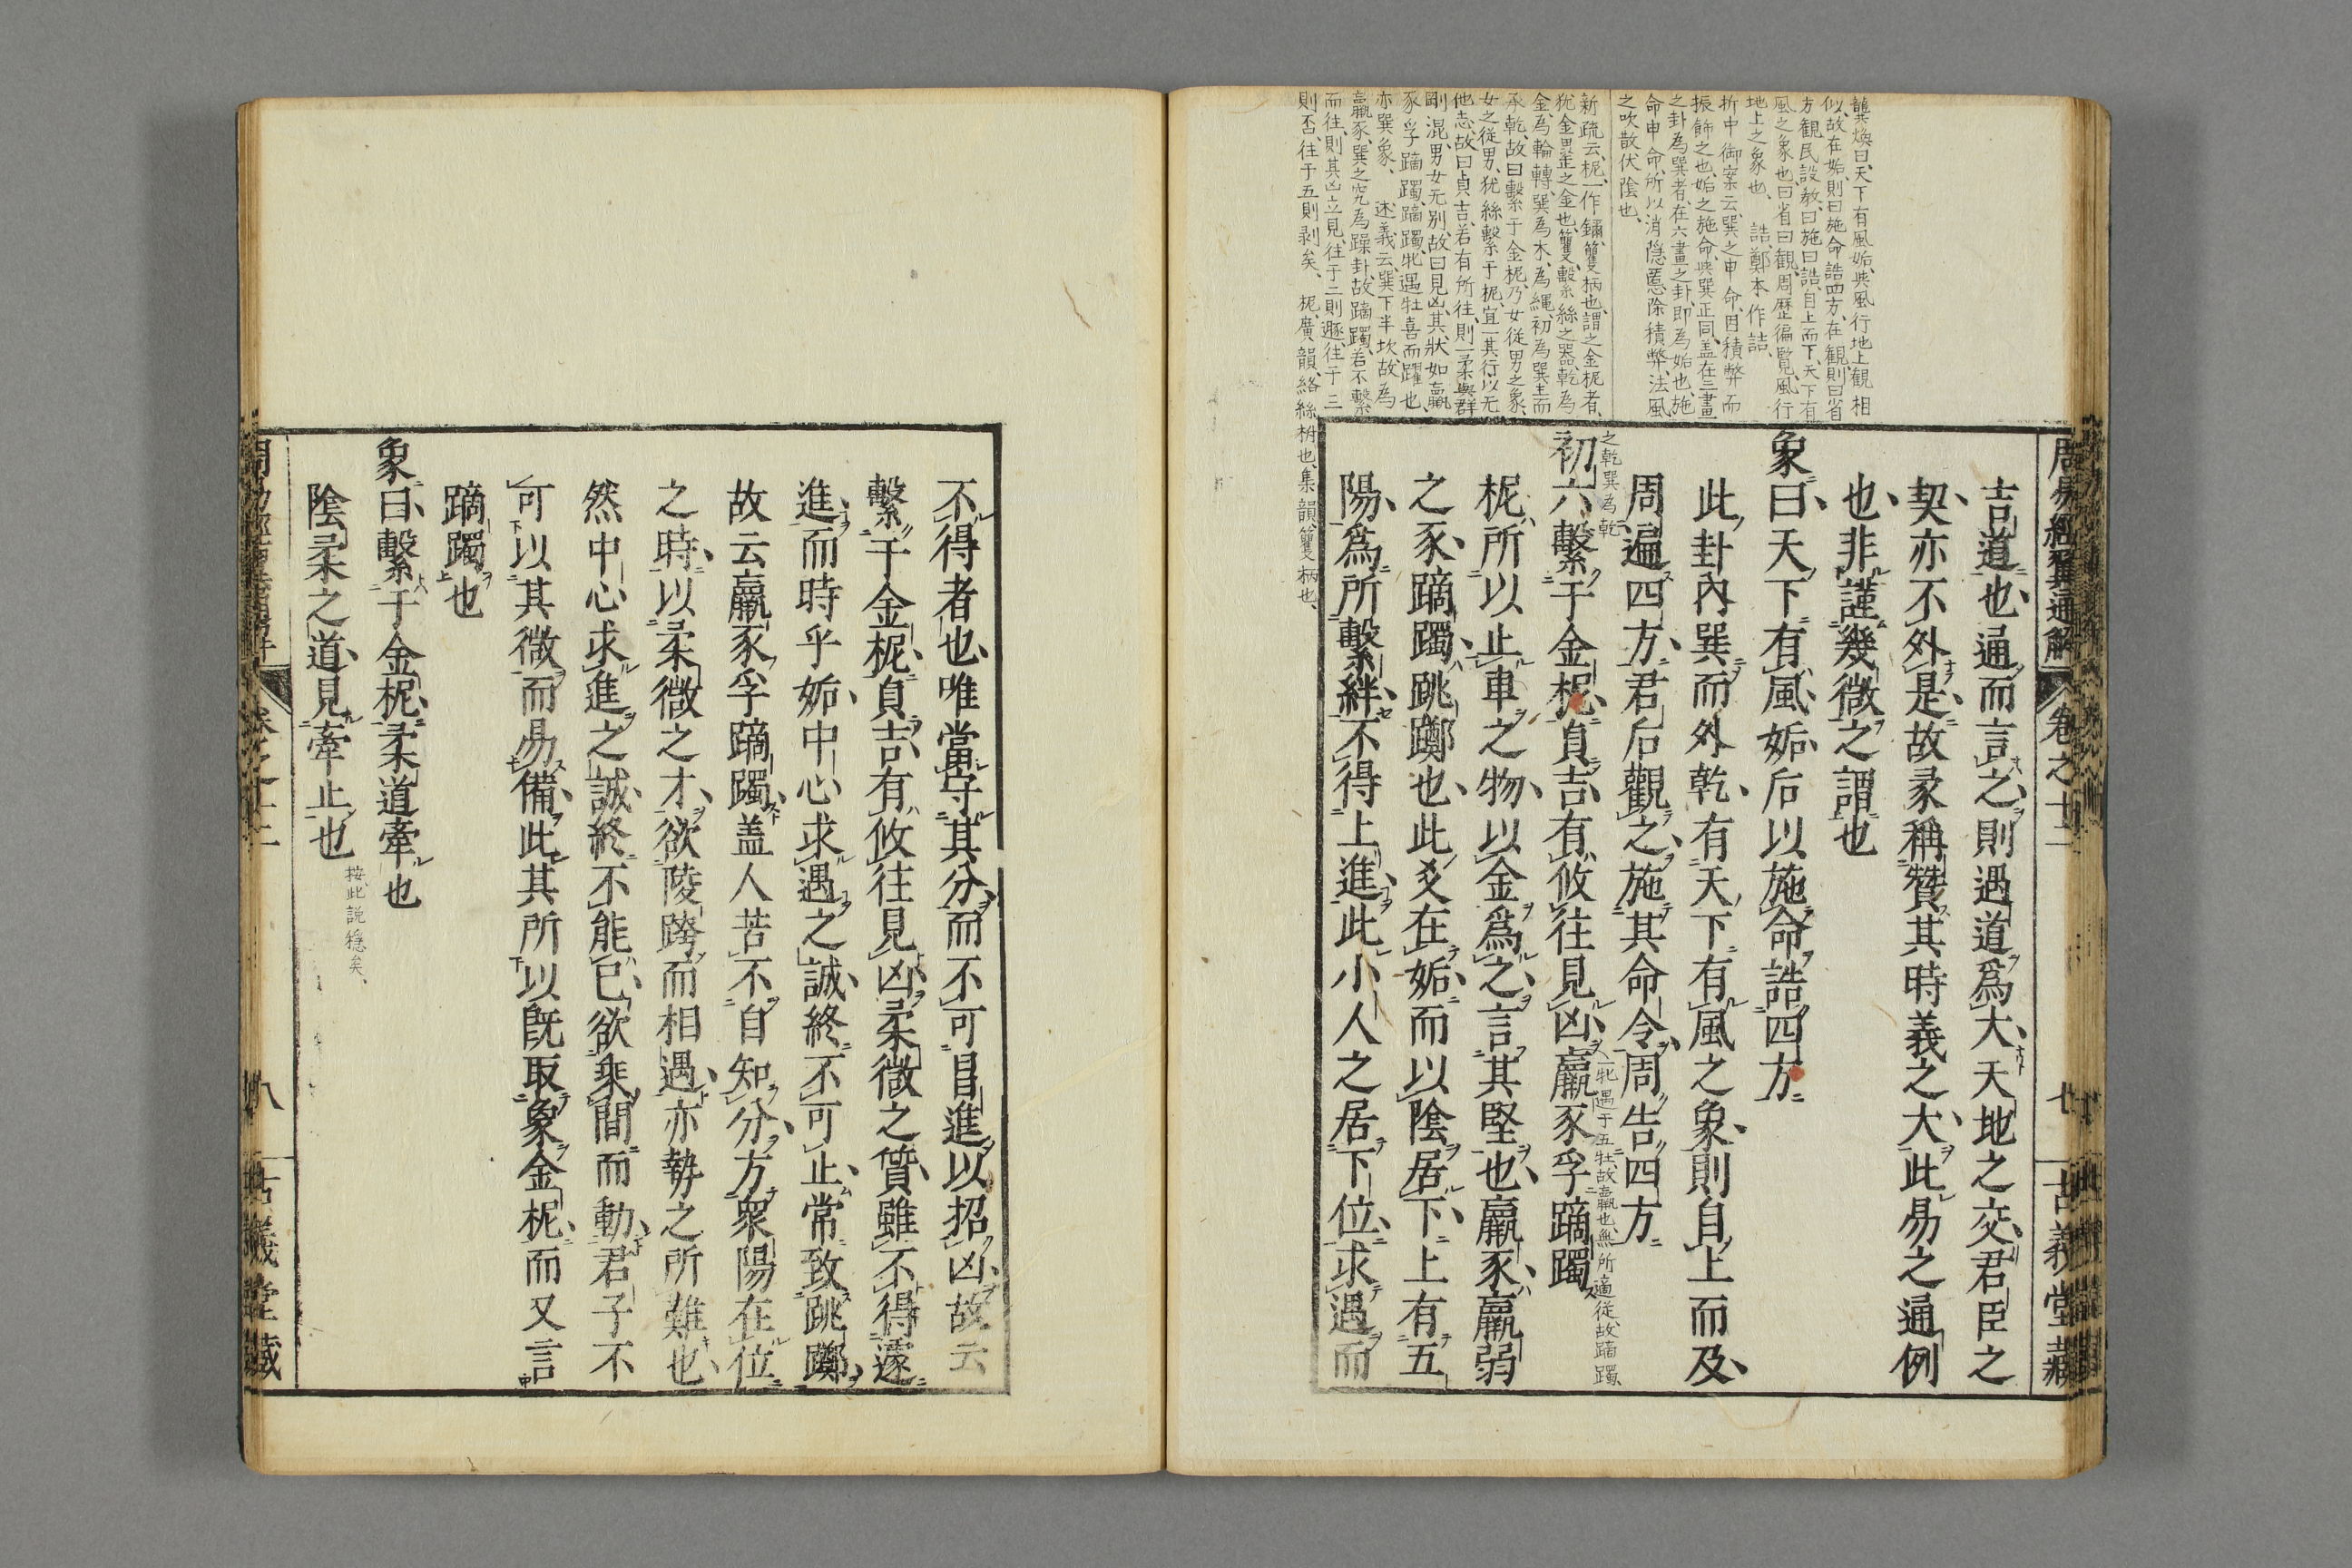 龔煥曰、天下有風姤、與風行地上觀相
似、故在姤則曰施命誥四方、在觀則曰省
方觀民設教、曰施曰誥、自上而下、天下有
風之象也、曰省曰觀、周歷徧覽、風行
地上之象也、 誥鄭本作詰、
折中御案云、巽之申命、因積弊而
振飾之也、姤之施命、與巽正同、盖在三畫
之卦為巽者、在六畫之卦、即為姤也、施
命申命、所以消隱慝除積弊、法風
之吹散伏陰也、
新疏云、柅一作鑈、籆柄也、謂之金柅者、
犹金罍之金也、籆、繫絲之器、乾為
金、為輪轉、巽為木、為繩、初為巽主而
承乾、故曰繫于金柅、乃女從男之象、
女之從男、犹絲繫于柅、宜一其行以无
他志、故曰貞吉、若有所往、則一柔與群
剛混、男女无別、故曰見凶、其狀如羸
豕孚蹢躅、蹢躅、牝遇牡喜而躍也、
亦巽象、 述義云、巽下半坎、故為
羸豕、巽之究為躁卦、故蹢躅、若不繫
而往、則其凶立見、往于二則遯、往于三
則否、往于五則剥矣、 柅、廣韻、絡絲柎也、集韻、籆柄也、
周易經翼通解 卷之十二 七 古義堂藏
吉道也、通而言之、則遇道爲大、天地之交、君臣之
契、亦不外是、故彖稱贊其時義之大、此易之通例
也、非謹幾微之謂也
象曰、天下有風、姤、后以施命誥四方
此卦內巽而外乾、有天下有風之象、則自上而及、
周遍四方、君后觀之、施其命令、周告四方
之乾巽為乾
初六繫于金柅、貞吉、有攸往見凶、羸豕孚蹢躅
一牝遇于五牡、故羸也、無所適從、故蹢躅、
柅所以止車之物、以金爲之、言其堅也、羸豕、羸弱
之豕、蹢躅、跳躑也、此爻在姤、而以陰居下、上有五
陽、爲所繫絆、不得上進、此小人之居下位、求遇而
不得者也、唯當守其分、而不可冒進以招凶、故云
繫于金柅、貞吉、有攸往見凶、柔微之質、雖不得遽
進、而時乎姤、中心求遇之誠、終不可止、常致跳躑、
故云羸豕孚蹢躅、盖人苦不自知分、方衆陽在位
之時、以柔微之才、欲陵跨而相遇、亦勢之所難也、
然中心求進之誠、終不能已、欲乗間而動、君子不
可以其微而易備、此其所以旣取象金柅、而又言
蹢躅也
象曰、繫于金柅、柔道牽也
陰柔之道、見牽止也
按此説穏矣、
周易經翼通解 卷之十二 八 古義堂藏